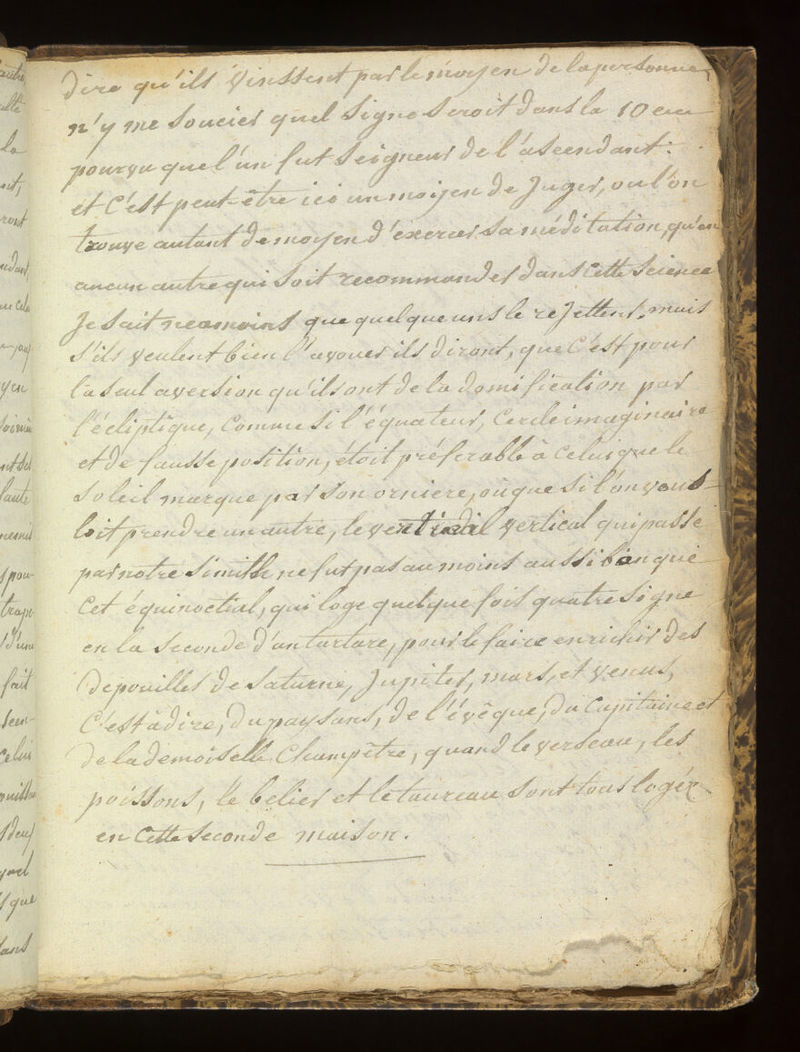 dire qu'ils vinssent par le moyen de la personne,
n'y me soucier quel signe seroit dans la 10 eme
pourvu que l'un fut seigneur de l'ascendant:
et c'est peut-être ici un moyen de Juger, ou l'on
trouve autant de moyen d'exercer sa méditation, qu'en
aucun autre qui soit recommander dans cette science
Je sait neamoins que quelque uns le rejettent, mais
s'ils veulent bien l'avouer ils diront, que c'est pour
la seul aversion qu'ils ont de la domification par
l'écliptique, comme si l'équateur, cercle imaginaire
et de fausse position, étoit préferable à celui que le
soleil marque par son orniere, ou que si l'on vou-
loit prendre un autre, le vertical qui passe
par notre Zenith, ne fut pas au moins aussi bon que
cet équinoctial, qui loge quelque fois quatre signe
en la seconde d'un tartare, pour le faire enrichir des
depouilles de saturne, Jupiter, mars, et venus,
C'est à dire, du paysans, de l'évêque, du Capitaine et
de la demoiselle Champêtre, quand le verseau, les
poissons, le belier et le taureau sont tous logér
en cette seconde maison.
les
ront
yen
fait
celui